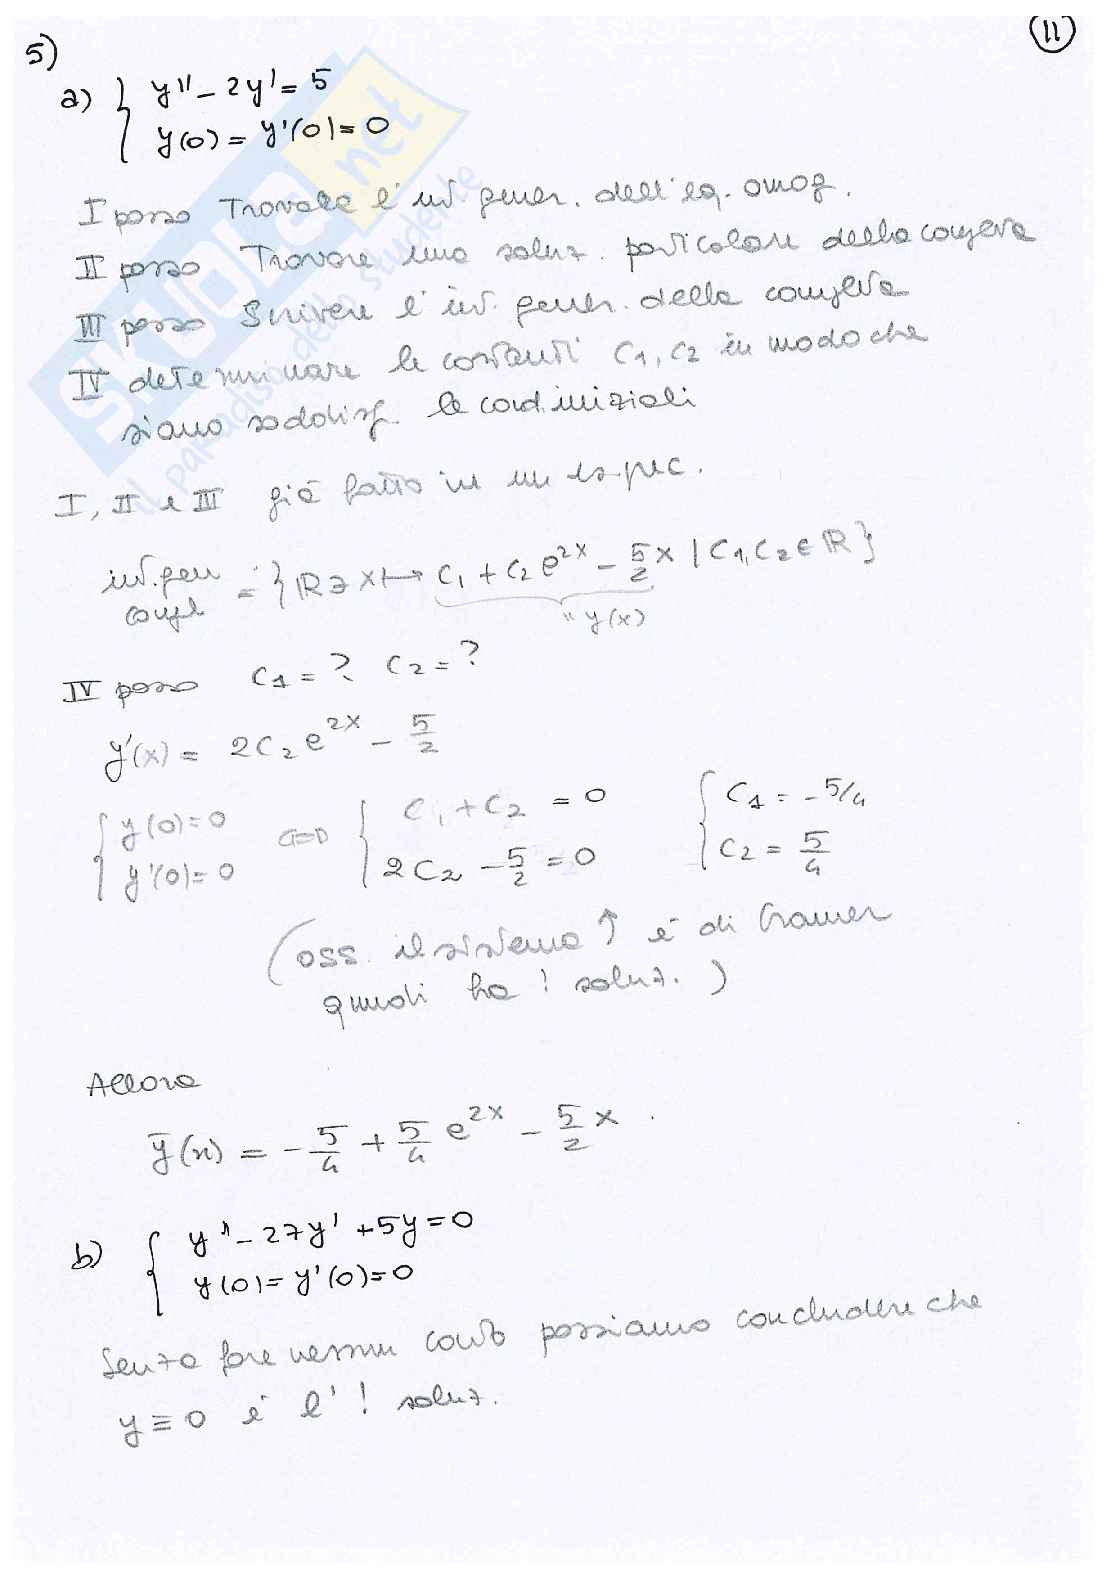 11
5)
a) { y'' - 2y' = 5
y(0) = y'(0) = 0
I passo Trovare l'int. gener. dell'eq. omog.
II passo Trovare una soluz. particolare della completa
III passo Scrivere l'int. gener. della completa
IV determinare le costanti C1, C2 in modo che
siano soddisf. le cond. iniziali
I, II e III già fatto in un es. prec.
int. gen compl = { R ∋ x ↦ C1 + C2 e^{2x} - 5/2 x | C1, C2 ∈ R }
" y(x)
IV passo C1 = ? C2 = ?
y'(x) = 2C2 e^{2x} - 5/2
{ y(0) = 0 ⟺ { C1 + C2 = 0 { C1 = -5/4
y'(0) = 0 2C2 - 5/2 = 0 C2 = 5/4
(oss. il sistema ↑ è di Cramer
quindi ha ! soluz.)
Allora
ȳ(x) = - 5/4 + 5/4 e^{2x} - 5/2 x .
b) { y'' - 27y' + 5y = 0
y(0) = y'(0) = 0
Senza fare nessun conto possiamo concludere che
y ≡ 0 è l'! soluz.
SKUOLA.net
il paradiso dello studente